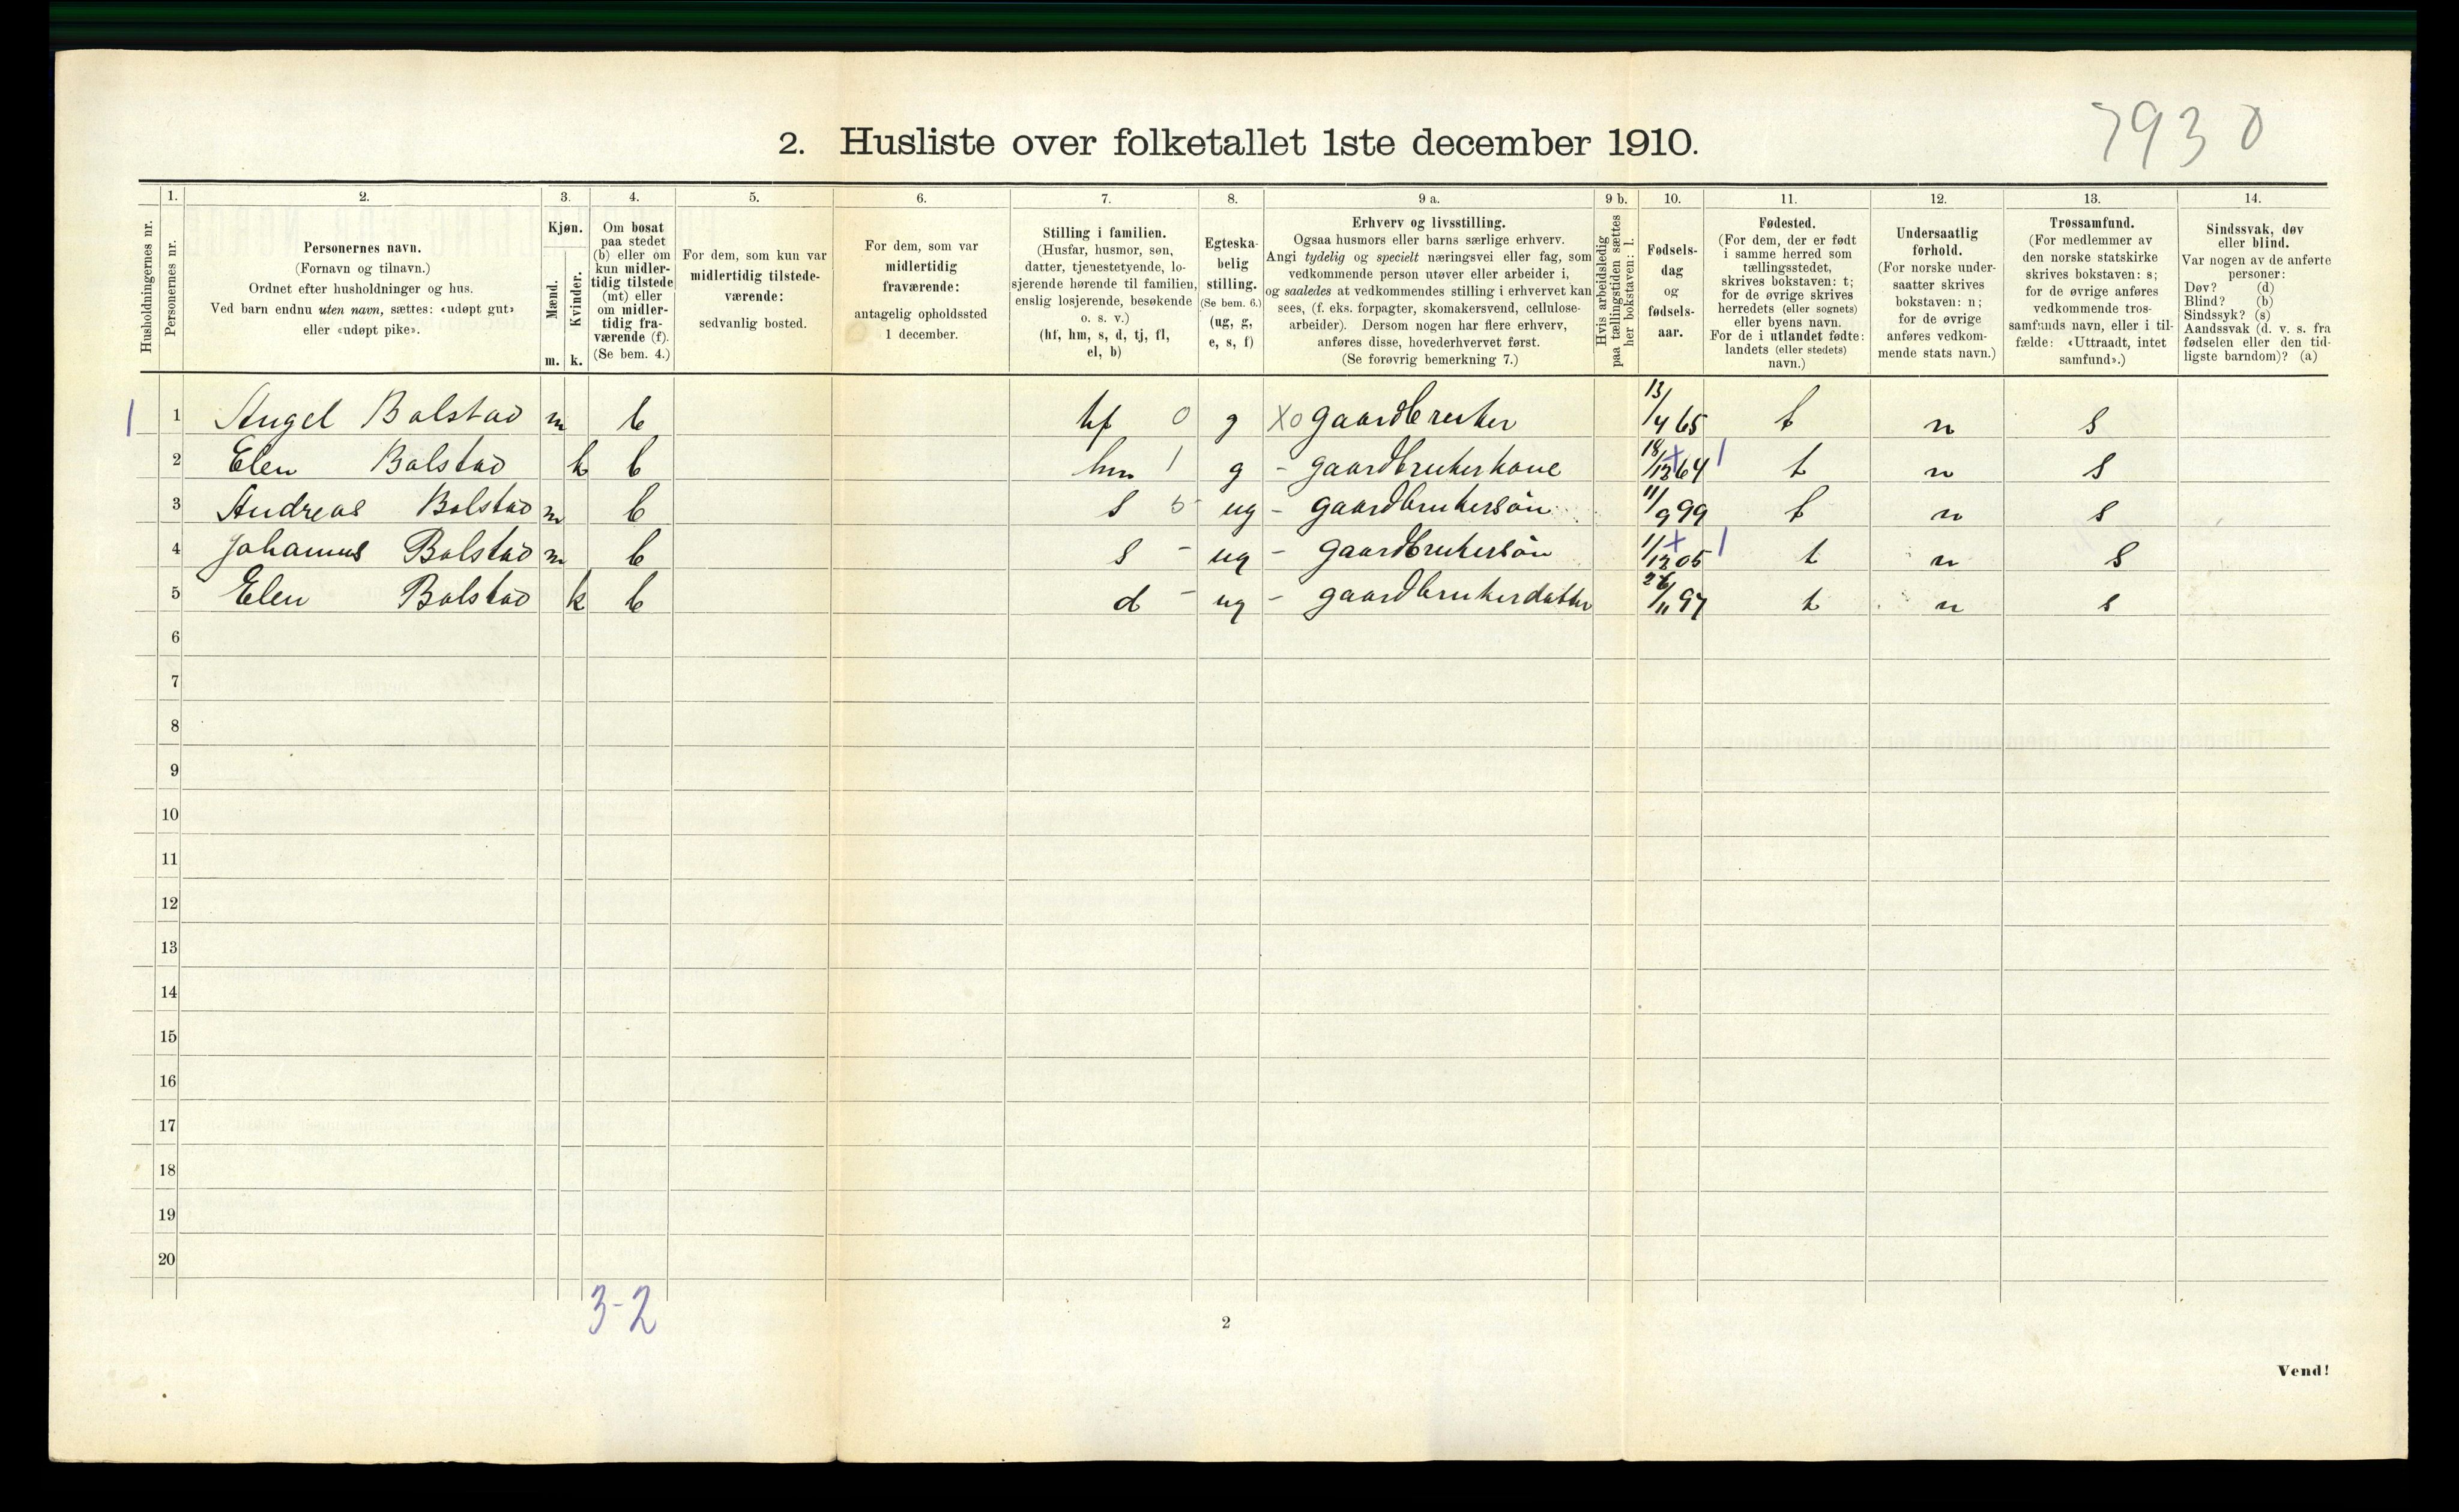 7930
2. Husliste over folketallet 1ste december 1910.
Husholdningernes nr.
1.
Personernes nr.
2.
Personernes navn.
(Fornavn og tilnavn.)
Ordnet efter husholdninger og hus.
Ved barn endnu uten navn, sættes: «udøpt gut»
eller «udøpt pike».
3.
Kjøn.
Mænd.
Kvinder.
m. k.
4.
Om bosat
paa stedet
(b) eller om
kun midler-
tidig tilstede
(mt) eller
om midler-
tidig fra-
værende (f).
(Se bem. 4.)
5.
For dem, som kun var
midlertidig tilstede-
værende:
sedvanlig bosted.
6.
For dem, som var
midlertidig
fraværende:
antagelig opholdssted
1 december.
7.
Stilling i familien.
(Husfar, husmor, søn,
datter, tjenestetyende, lo-
sjerende hørende til familien,
enslig losjerende, besøkende
o. s. v.)
(hf, hm, s, d, tj, fl,
el, b)
8.
Egteska-
belig
stilling.
(Se bem. 6.)
(ug, g,
e, s, f)
9 a.
Erhverv og livsstilling.
Ogsaa husmors eller barns særlige erhverv.
Angi tydelig og specielt næringsvei eller fag, som
vedkommende person utøver eller arbeider i,
og saaledes at vedkommendes stilling i erhvervet kan
sees, (f. eks. forpagter, skomakersvend, cellulose-
arbeider). Dersom nogen har flere erhverv,
anføres disse, hovederhvervet først.
(Se forøvrig bemerkning 7.)
9 b.
Hvis arbeidsledig
paa tællingstiden sættes
her bokstaven: l.
10.
Fødsels-
dag
og
fødsels-
aar.
11.
Fødested.
(For dem, der er født
i samme herred som
tællingsstedet,
skrives bokstaven: t;
for de øvrige skrives
herredets (eller sognets)
eller byens navn.
For de i utlandet fødte:
landets (eller stedets)
navn.)
12.
Undersaatlig
forhold.
(For norske under-
saatter skrives
bokstaven: n;
for de øvrige
anføres vedkom-
mende stats navn.)
13.
Trossamfund.
(For medlemmer av
den norske statskirke
skrives bokstaven: s;
for de øvrige anføres
vedkommende tros-
samfunds navn, eller i til-
fælde: «Uttraadt, intet
samfund».)
14.
Sindssvak, døv
eller blind.
Var nogen av de anførte
personer:
Døv? (d)
Blind? (b)
Sindssyk? (s)
Aandssvak (d. v. s. fra
fødselen eller den tid-
ligste barndom)? (a)
1 1 Angel Bolstad m b hf 0 g X0 gaardbruker 13/4 65 t n s
2 Elen Bolstad k b hm 1 g - gaardbrukerkone 18/12 64 1 t n s
3 Andreas Bolstad m b s 5 ug - gaardbrukersön 11/9 99 t n s
4 Johannes Bolstad m b s - ug - gaardbrukersön 11/12 05 1 t n s
5 Elen Bolstad k b d - ug - gaardbrukerdatter 26/11 97 t n s
6
7
8
9
10
11
12
13
14
15
16
17
18
19
20
3-2
2
Vend!